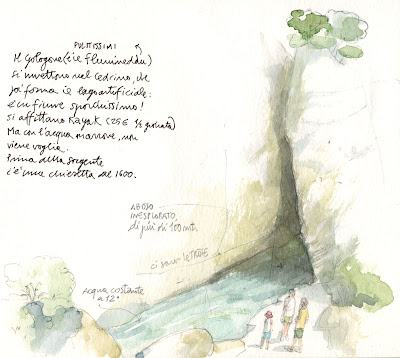 PULITISSIMI
Il Gologone (e il Flumineddu)
si immettono nel Cedrino, che
poi forma il lago artificiale:
è un fiume sporchissimo!
si affittano Kayak (25€ ½ giornata)
Ma con l'acqua marrone, non
viene voglia.
Prima della sorgente
c'è una chiesetta del 1600.
ABISSO
INESPLORATO,
di più di 100 mt.
ci sono le TROTE
Acqua costante
a 12°